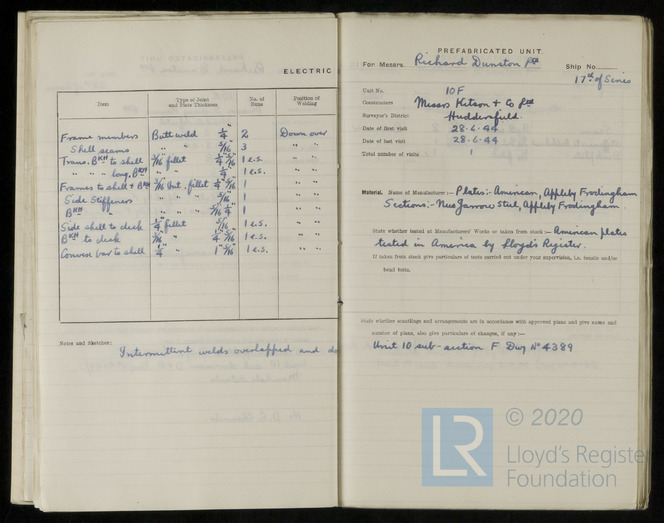 ELECTRIC
Item
Type of Joint
and Plate Thickness
No. of
Runs
Position of
Welding
Frame members Butt weld 1/4" 2 Down over
Shell seams " " 5/16 3 " "
Trans. BKH to shell 3/16 fillet 1/4" 5/16" 1 e.s. " "
" " " long. BKH " " 1/4" 1 e.s. " "
Frames to shell & BKH 3/16 Int. fillet 1/4" 5/16" 1 " "
Side Stiffeners " " " 5/16" 1 " "
BKH " " " " 5/16" 1/4" 1 " "
Side shell to deck 1/4" fillet 5/16" 1 e.s. " "
BKH to deck 3/16 " 1/4" 5/16" 1 e.s. " "
Convex bar to shell 1/4" " 1" 5/16" 1 e.s. " "
Notes and Sketches:
Intermittent welds overlapped and do
PREFABRICATED UNIT.
For Messrs. Richard Dunston Ltd Ship No.
17th of Series
Unit No. 10F
Constructors Messrs Kitson & Co Ltd
Surveyor's District Huddersfield
Date of first visit 28-6-44
Date of last visit 28-6-44
Total number of visits 1
Material. Name of Manufacturer:- Plates:- American, Appleby Frodingham
Sections:- New Jarrow Steel, Appleby Frodingham
State whether tested at Manufacturers' Works or taken from stock:- American plates
tested in America by Lloyd's Register.
If taken from stock give particulars of tests carried out under your supervision, i.e. tensile and/or
bend tests.
State whether scantlings and arrangements are in accordance with approved plans and give name and
number of plans, also give particulars of changes, if any:-
Unit 10 sub-section F Dwg No 4389
LR
© 2020
Lloyd's Register
Foundation